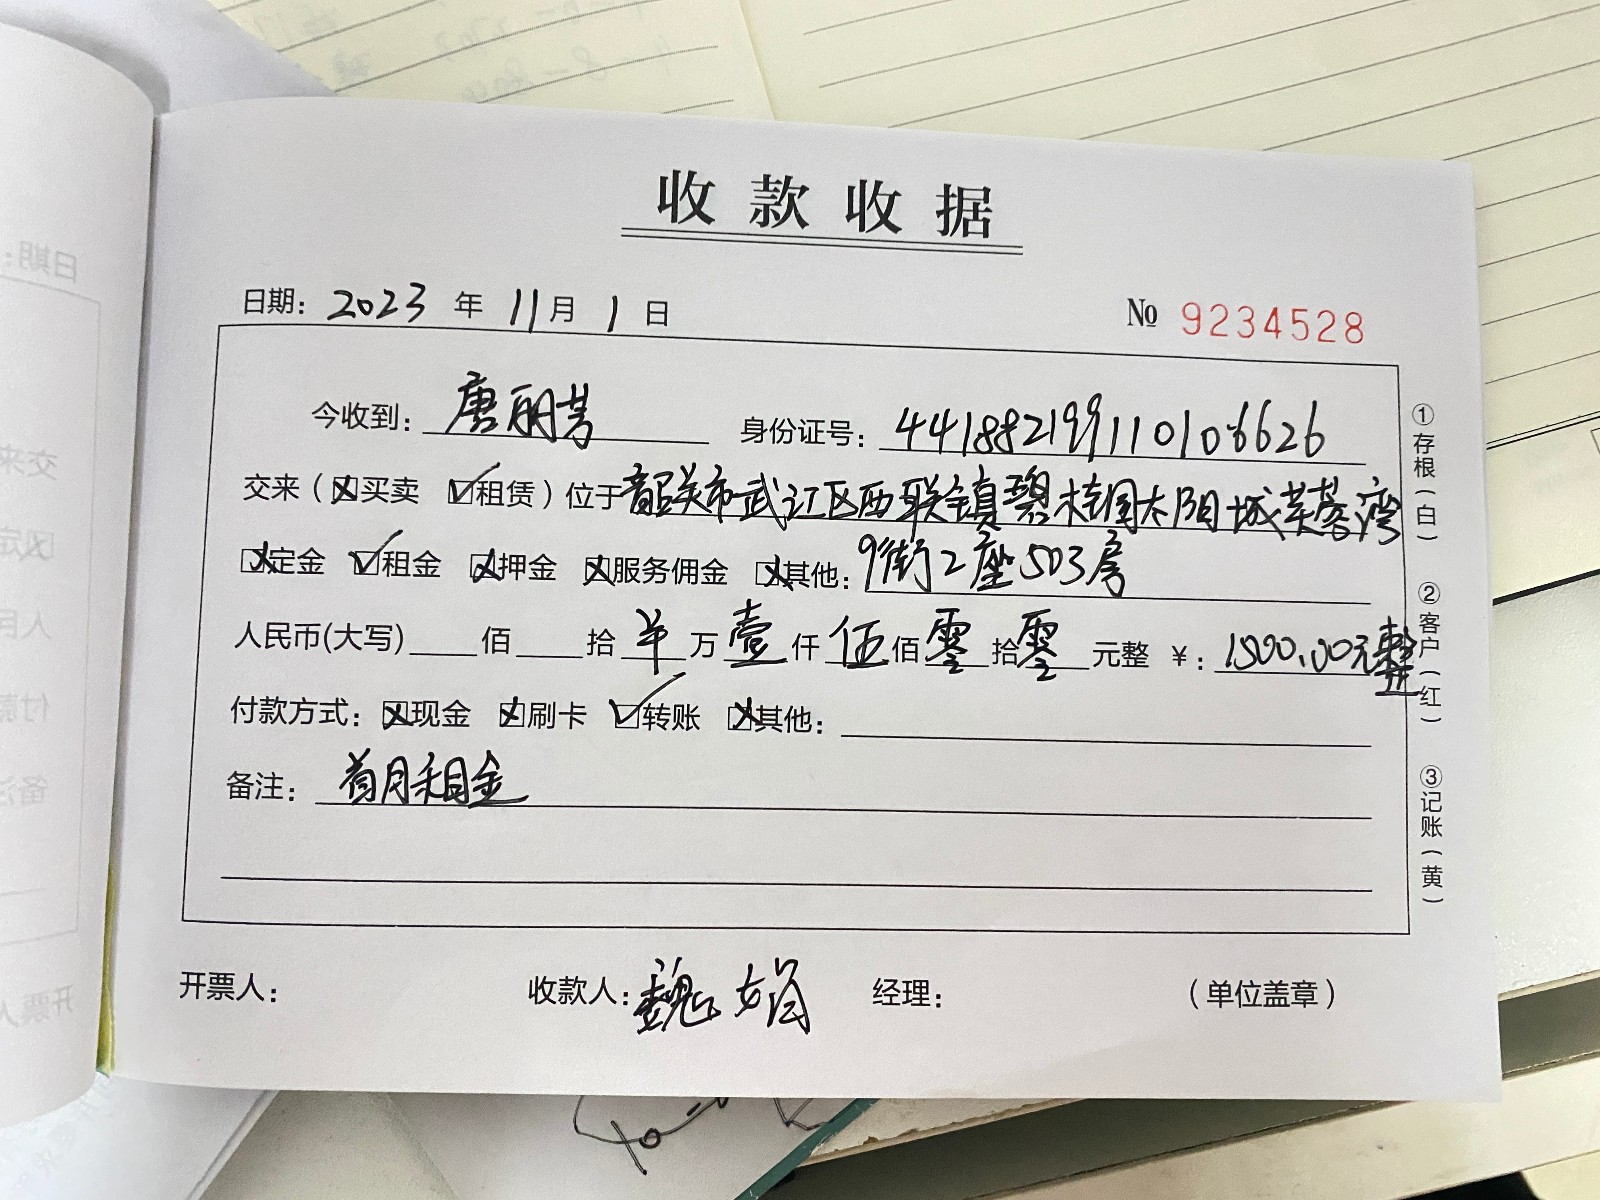 收款收据
日期: 2023 年 11月 1 日 № 9234528
今收到: 唐丽芳 身份证号: 441882199110106626
交来（☒买卖 ☑租赁）位于韶关市武江区西联镇碧桂园太阳城芙蓉湾
☒定金 ☑租金 ☒押金 ☒服务佣金 ☒其他: 9街2座503房
人民币(大写)____佰____拾 半 万 壹 仟 伍 佰 零 拾 零 元整 ¥: 1500.00元整
付款方式: ☒现金 ☒刷卡 ☑转账 ☒其他:
备注: 首月租金
开票人: 收款人: 魏娟 经理: （单位盖章）
①存根（白）
②客户（红）
③记账（黄）